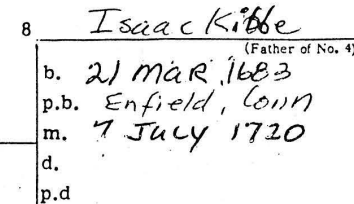 8 Isaac Kibbe
(Father of No. 4)
b. 21 MAR, 1683
p.b. Enfield, Conn
m. 7 July 1720
d.
p.d